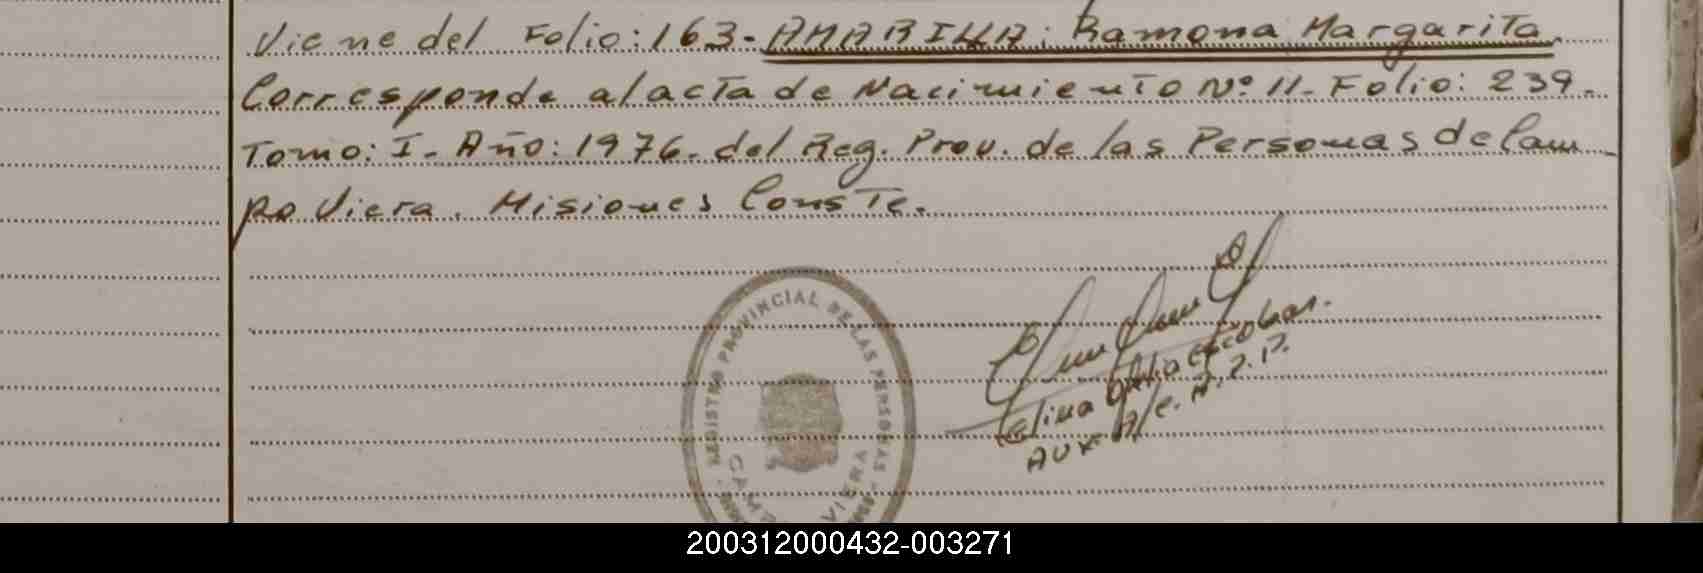 Viene del Folio: 163- AMARILLA: Ramona Margarita.
Corresponde al acta de Nacimiento Nº 11- Folio: 239-
Tomo: I- Año: 1976- del Reg. Prov. de las Personas de Cam
po Viera. Misiones Conste.
REGISTRO PROVINCIAL DE LAS PERSONAS
CAMPO VIERA
Escobar.
AUX- A/C. R.P.P.
200312000432-003271